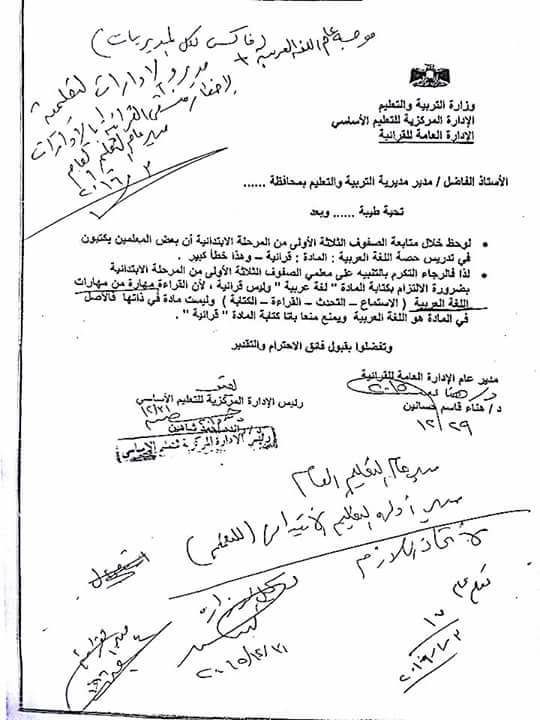 موجه عام اللغة العربية + (فاكس لكل المديريات)
مديرو الإدارات التعليمية
وزارة التربية والتعليم
الإدارة المركزية للتعليم الأساسي
الإدارة العامة للقرائية
الأستاذ الفاضل / مدير مديرية التربية والتعليم بمحافظة ......
تحية طيبة ...... وبعد
• لوحظ خلال متابعة الصفوف الثلاثة الأولى من المرحلة الابتدائية أن بعض المعلمين يكتبون
في تدريس حصة اللغة العربية : المادة : قرائية – وهذا خطأ كبير .
• لذا فالرجاء التكرم بالتنبيه على معلمي الصفوف الثلاثة الأولى من المرحلة الابتدائية
بضرورة الالتزام بكتابة المادة " لغة عربية " وليس قرائية ، لأن القراءة مهارة من مهارات
اللغة العربية ( الاستماع – التحدث – القراءة – الكتابة ) وليست مادة في ذاتها فالأصل
في المادة هو اللغة العربية ويمنع منعا باتا كتابة المادة " قرائية " .
وتفضلوا بقبول فائق الاحترام والتقدير
مدير عام الإدارة العامة للقرائية
د / هناء قاسم حسانين
١٢/٢٩
رئيس الإدارة المركزية للتعليم الأساسي
١٢/٣١
رئيس الإدارة المركزية للتعليم الأساسي
مدير عام التعليم العام
مدير إدارة التعليم الابتدائي
لاتخاذ اللازم
وكيل الوزارة
٢٠١٥/١٢/٣١